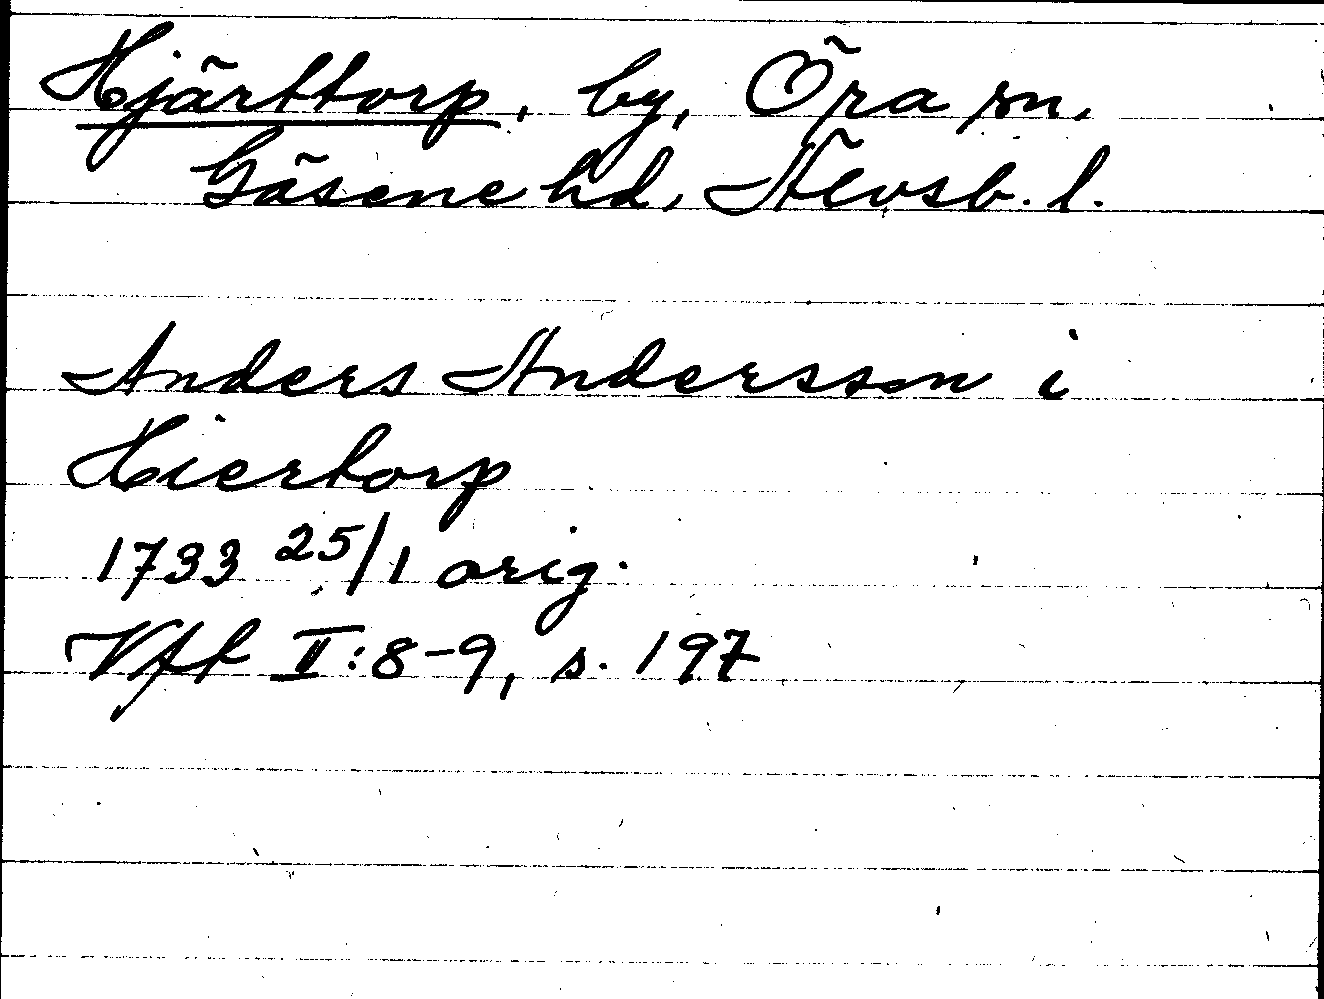 Hjärttorp, by, Öra sn.
Gäsene hd, Älvsb. l.
Anders Andersson i
Hiertorp
1733 25/1 orig.
Vft II:8-9, s. 197